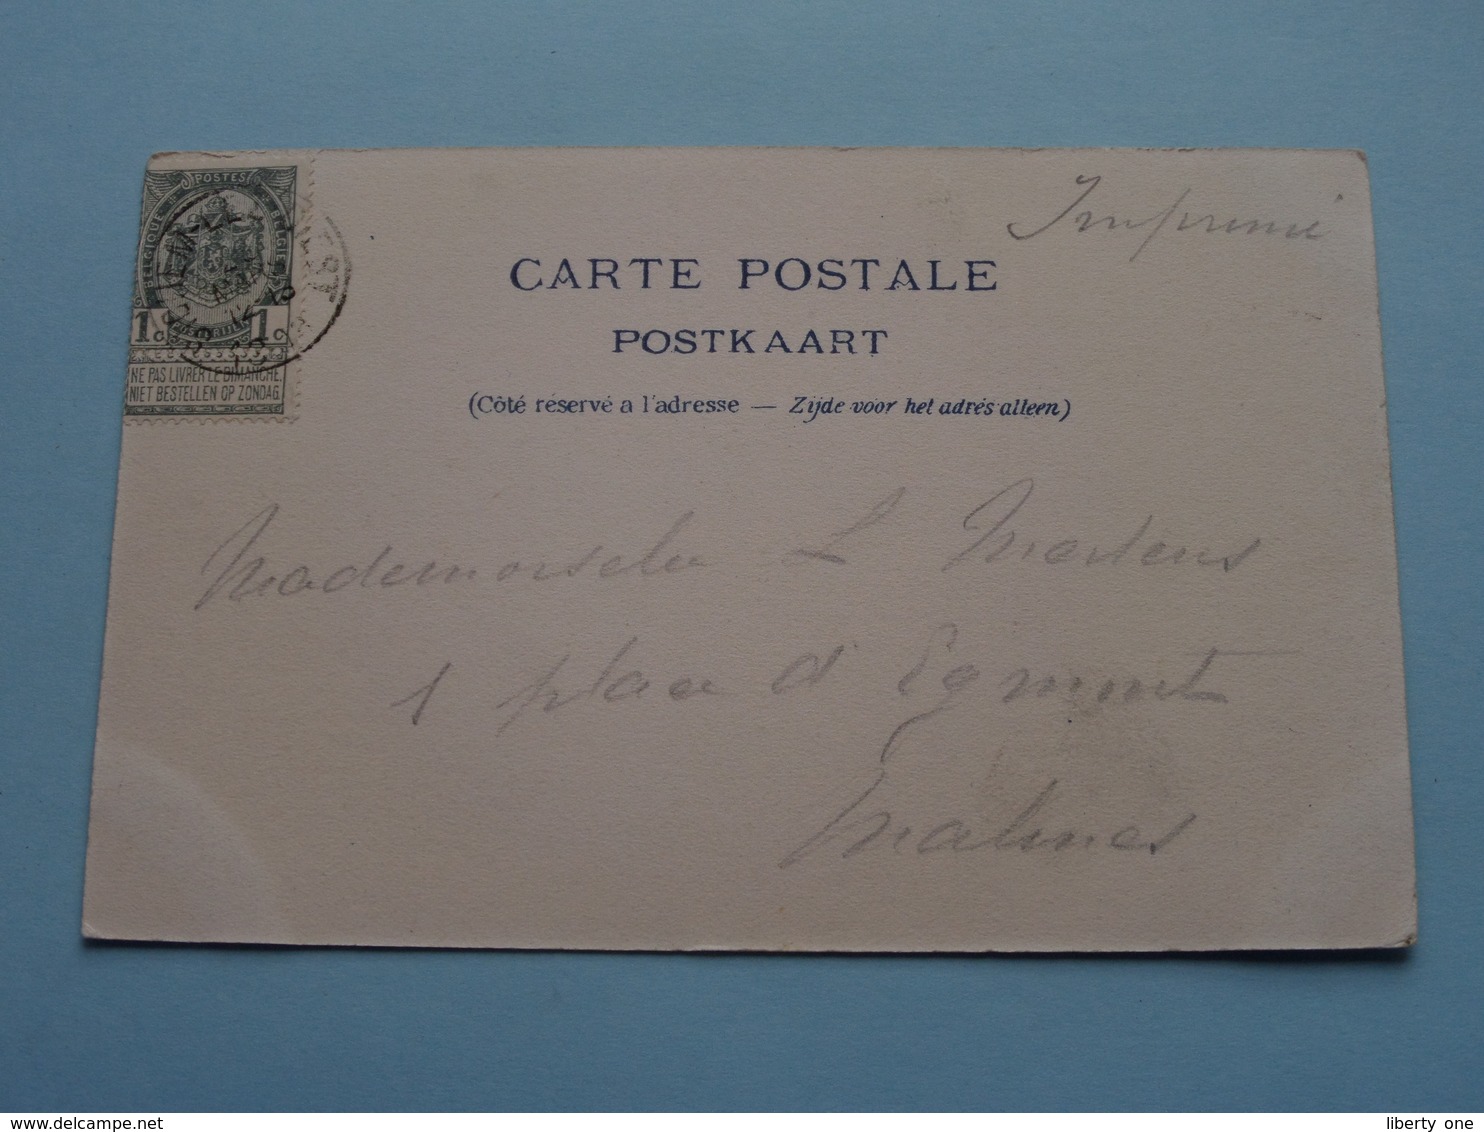 POSTES
BELGIQUE
BELGIE
1c 1c
POSTERIJEN
NE PAS LIVRER LE DIMANCHE.
NIET BESTELLEN OP ZONDAG.
Imprimé
CARTE POSTALE
POSTKAART
(Côté réservé a l'adresse — Zijde voor het adres alleen)
Mademoiselle L Martens
1 place d'Egmont
Malines
liberty one